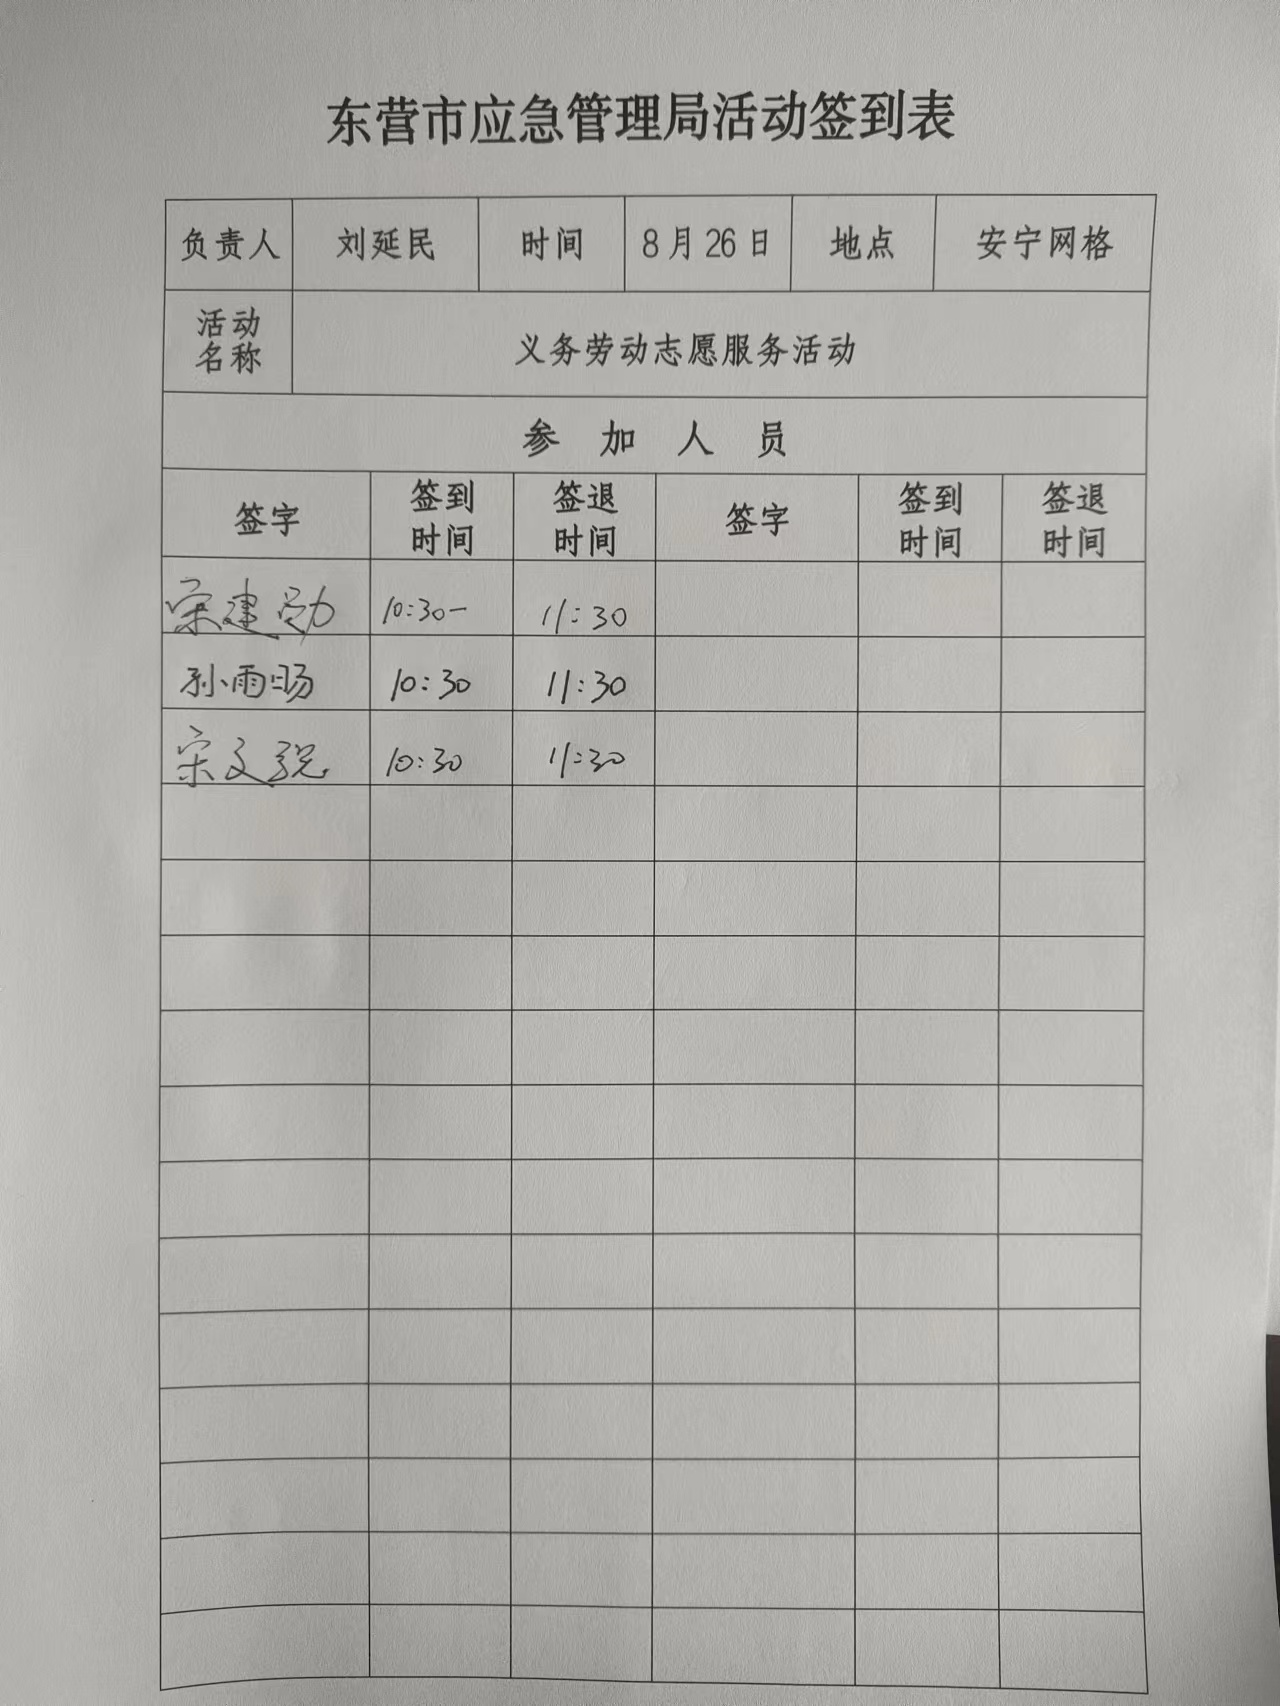 东营市应急管理局活动签到表
负责人 刘延民 时间 8月26日 地点 安宁网格
活动名称 义务劳动志愿服务活动
参加人员
签字 签到时间 签退时间 签字 签到时间 签退时间
宋建勋 10:30- 11:30
孙雨旸 10:30 11:30
宋文 10:30 11:30